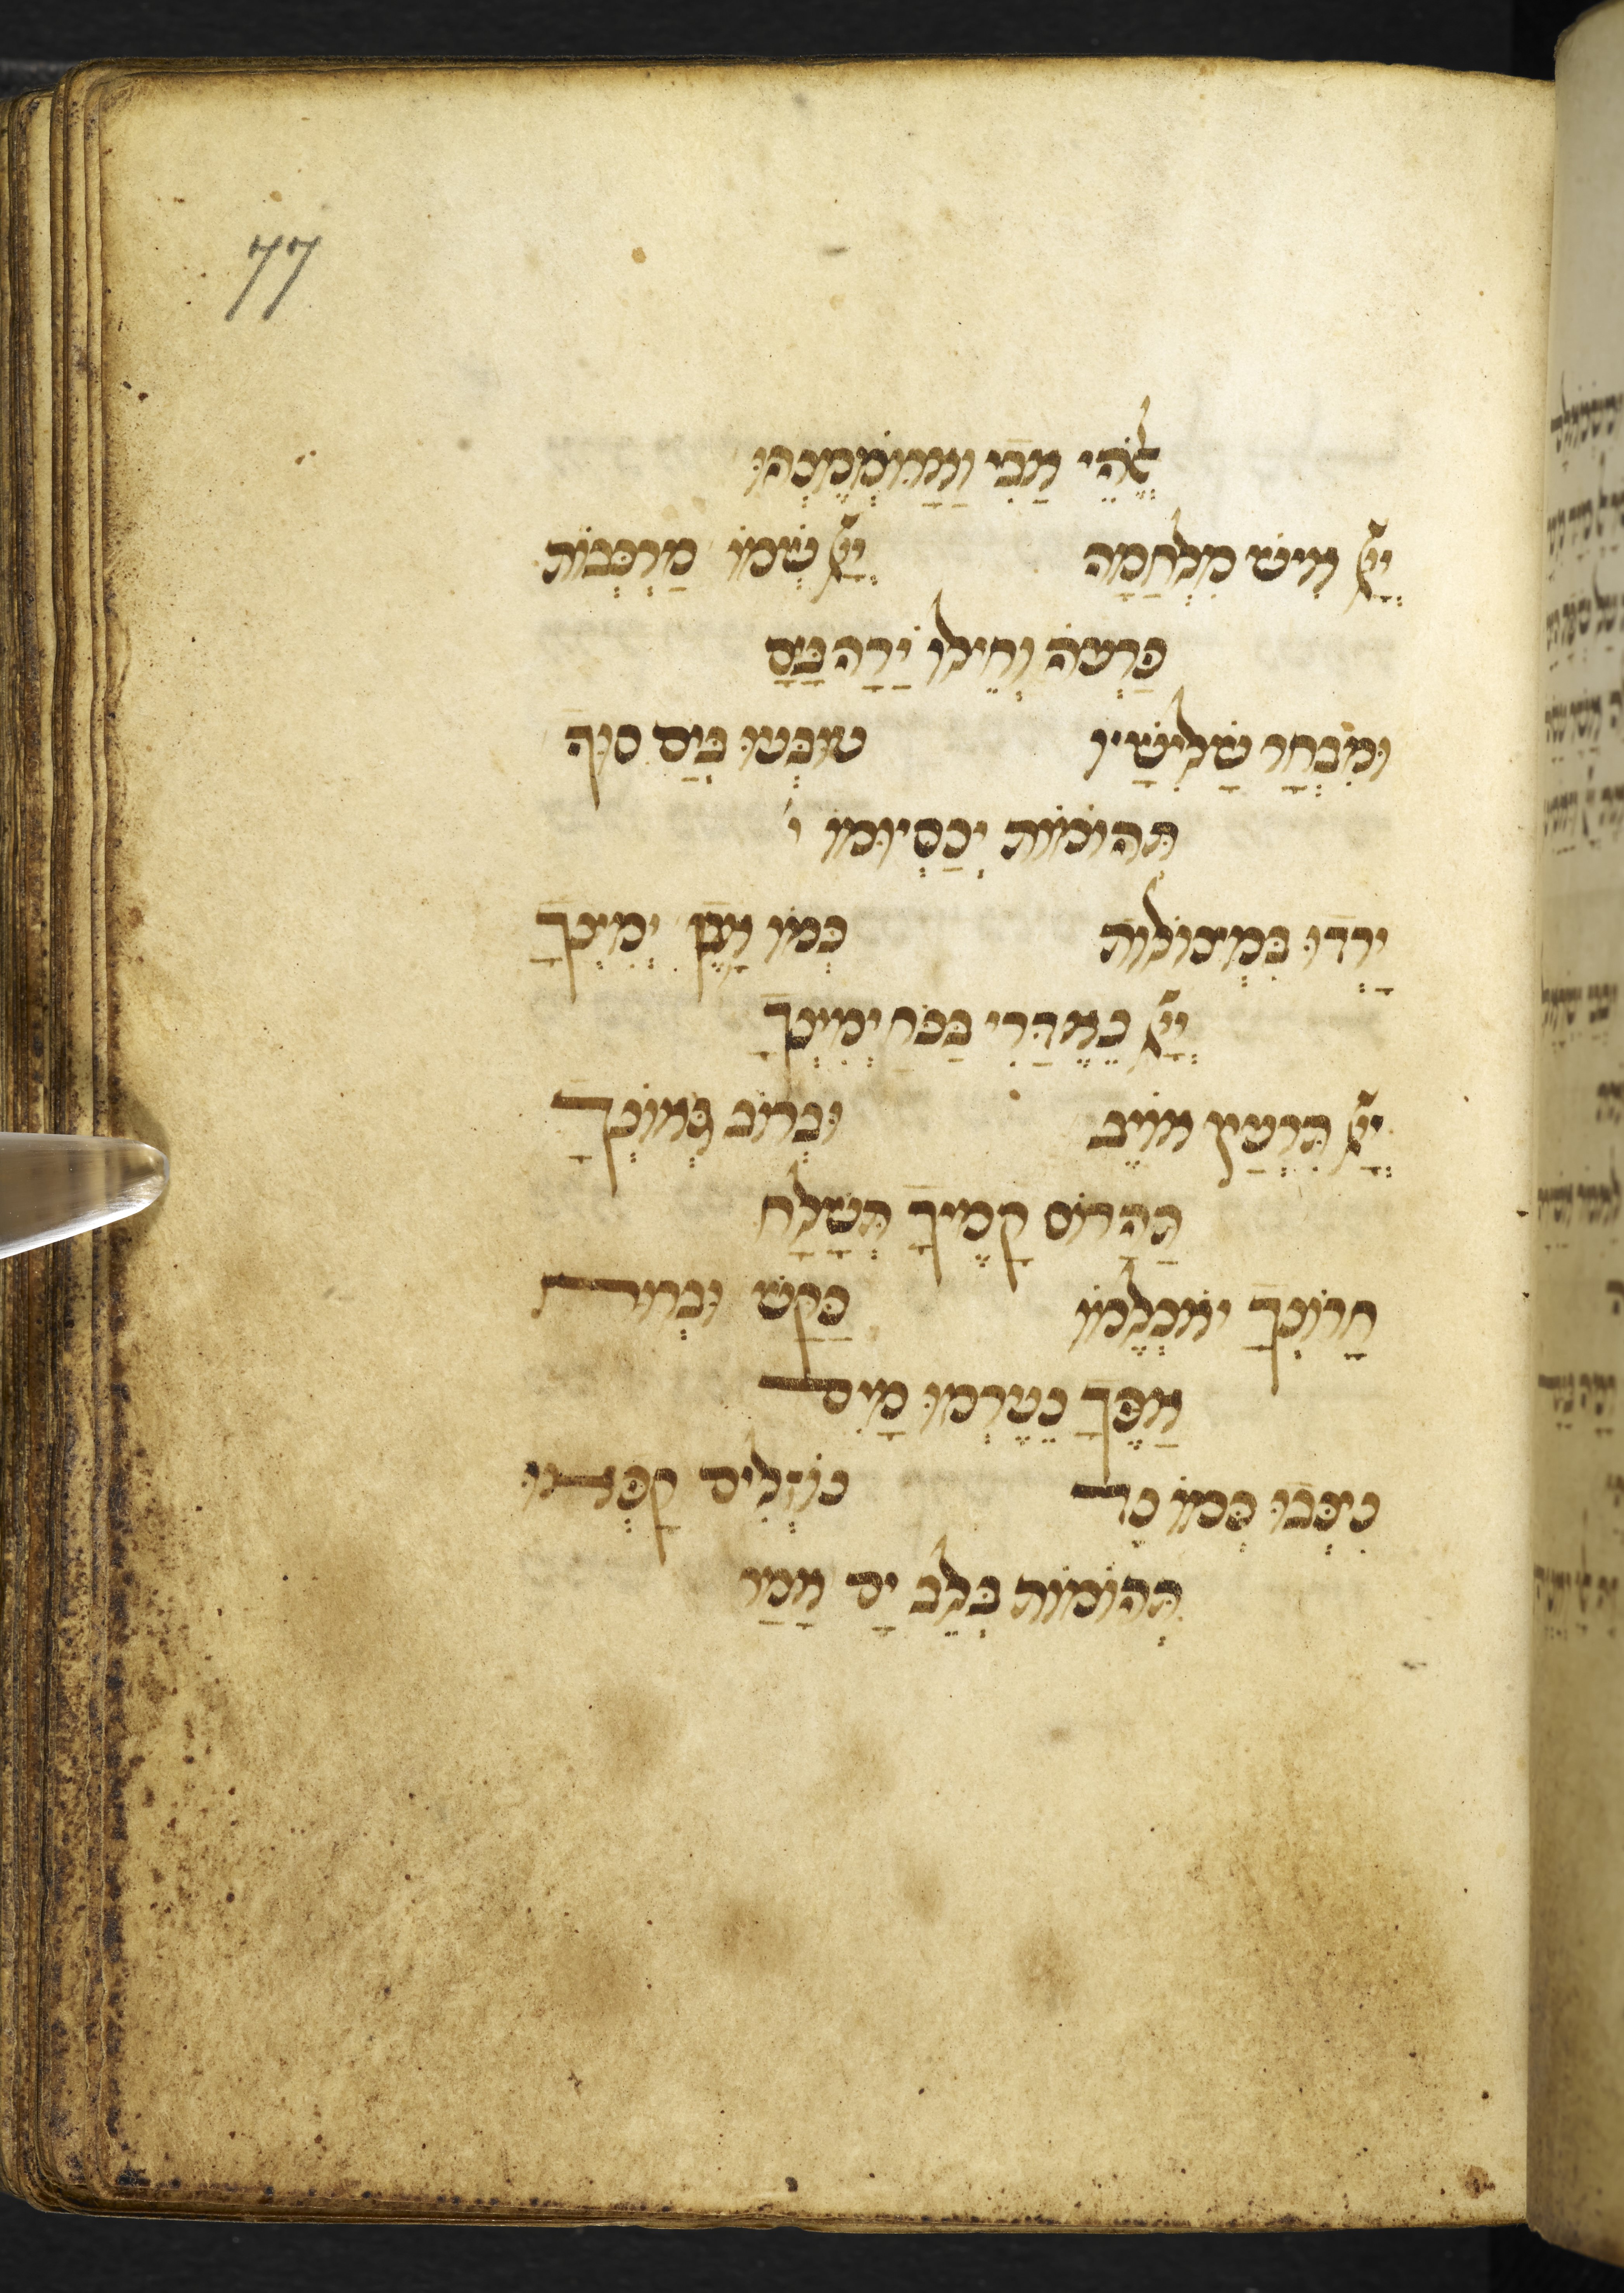 77
אלהי אבי וארוממנהו
יי איש מלחמה יי שמו מרכבות
פרעה וחילו ירה בים
ומבחר שלישיו טובעו בים סוף
תהומות יכסיומו י
ירדו במצולות כמו אבן ימינך
יי נאדרי בכח ימינך
יי תרעץ אויב וברוב גאונך
תהרוס קמיך תשלח
חרונך יאכלמו כקש וברוח
אפך נערמו מים
נצבו כמו נד נוזלים קפאו
תהומות בלב ים אמר